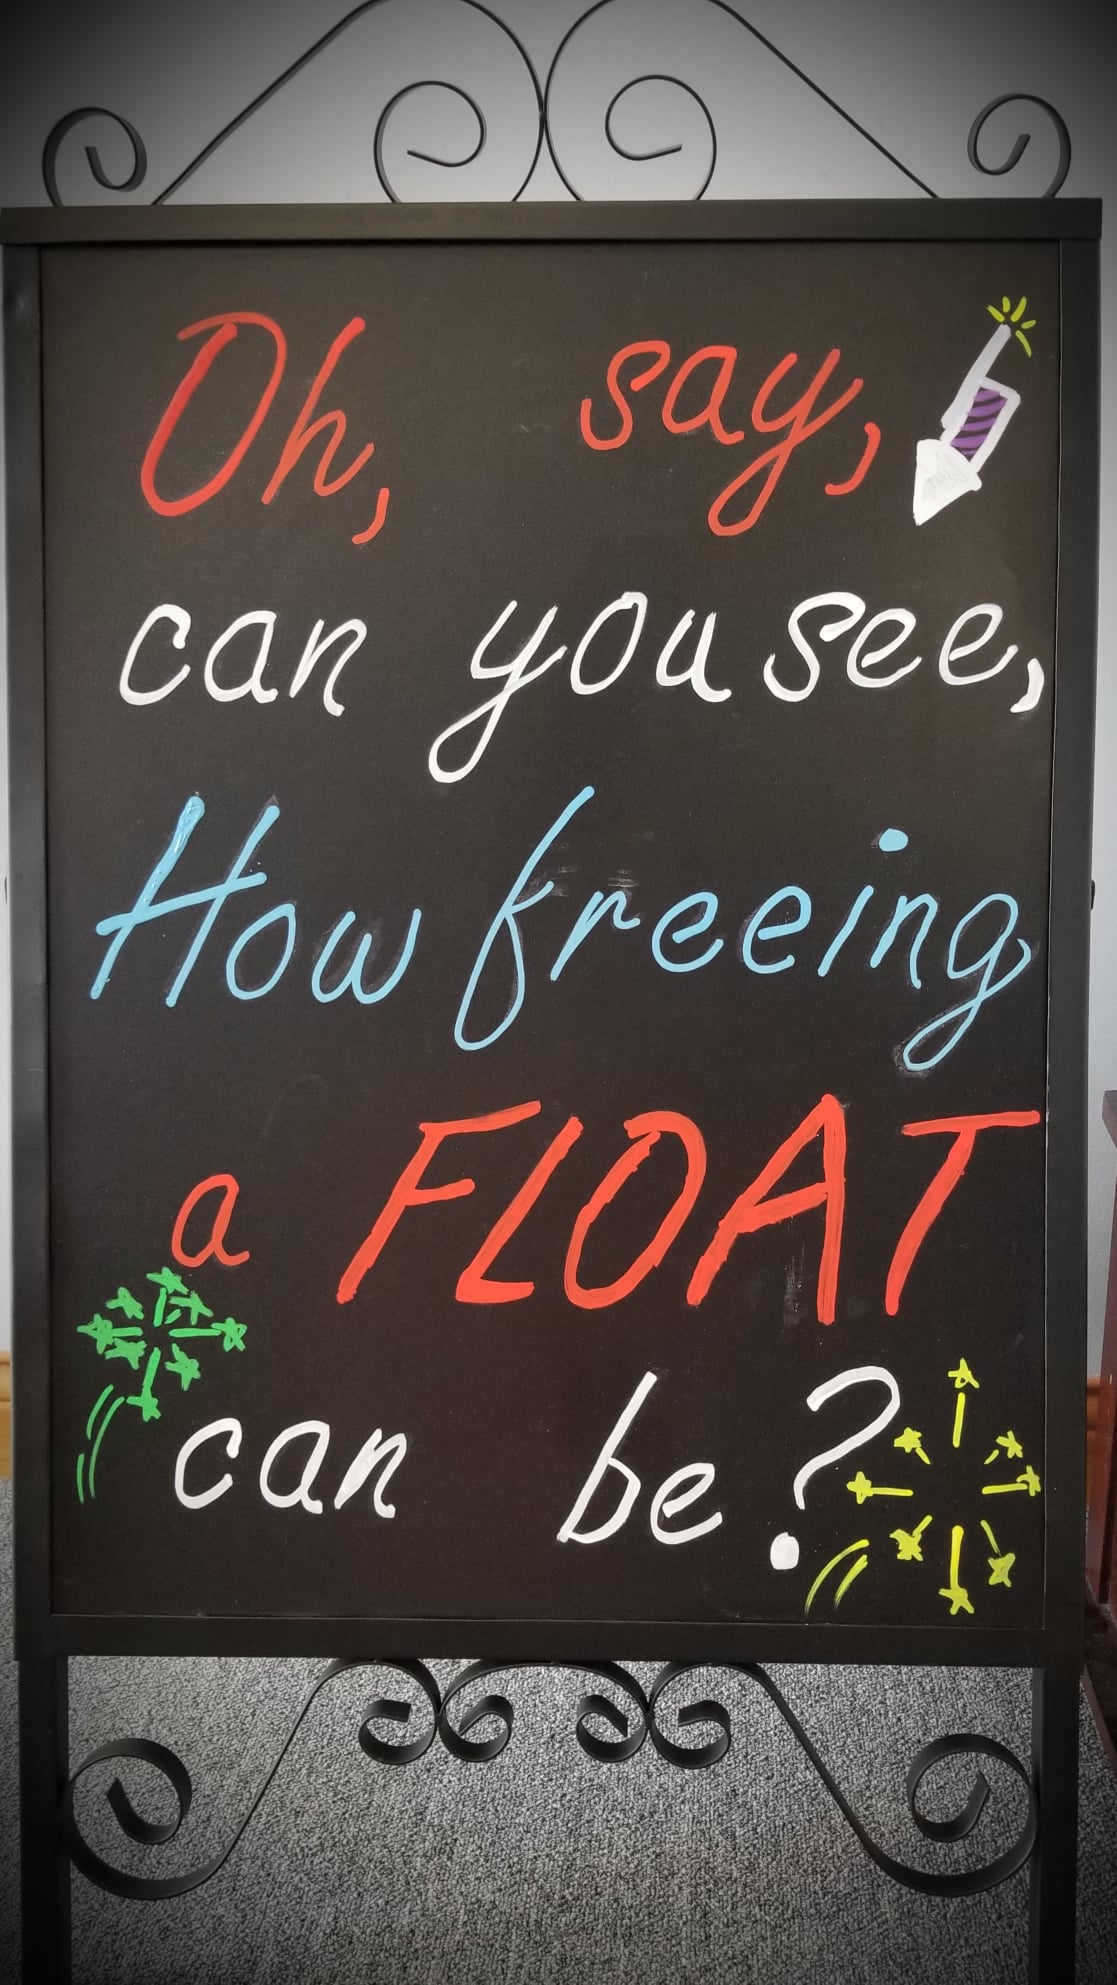 Oh, say,
can you see,
How freeing
a FLOAT
can be?